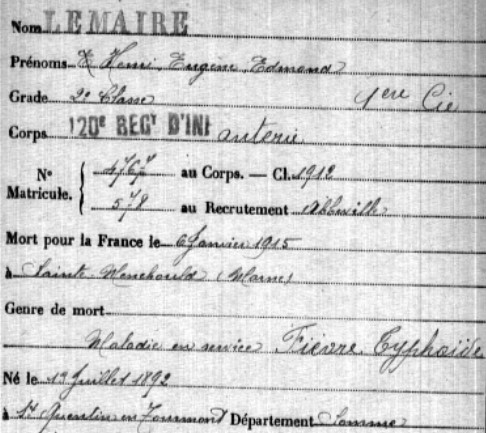 Nom LEMAIRE
Prénoms Henri Eugène Edmond
Grade 2e Classe 1ere Cie
Corps 120e REGt D'INFanterie
No Matricule. 4767 au Corps. — Cl. 1912
578 au Recrutement Abbeville
Mort pour la France le 6 Janvier 1915
à Sainte Menehould (Marne)
Genre de mort
Maladie en service Fièvre Typhoïde
Né le Juillet 1892
à St Quentin en Tourmont Département Somme